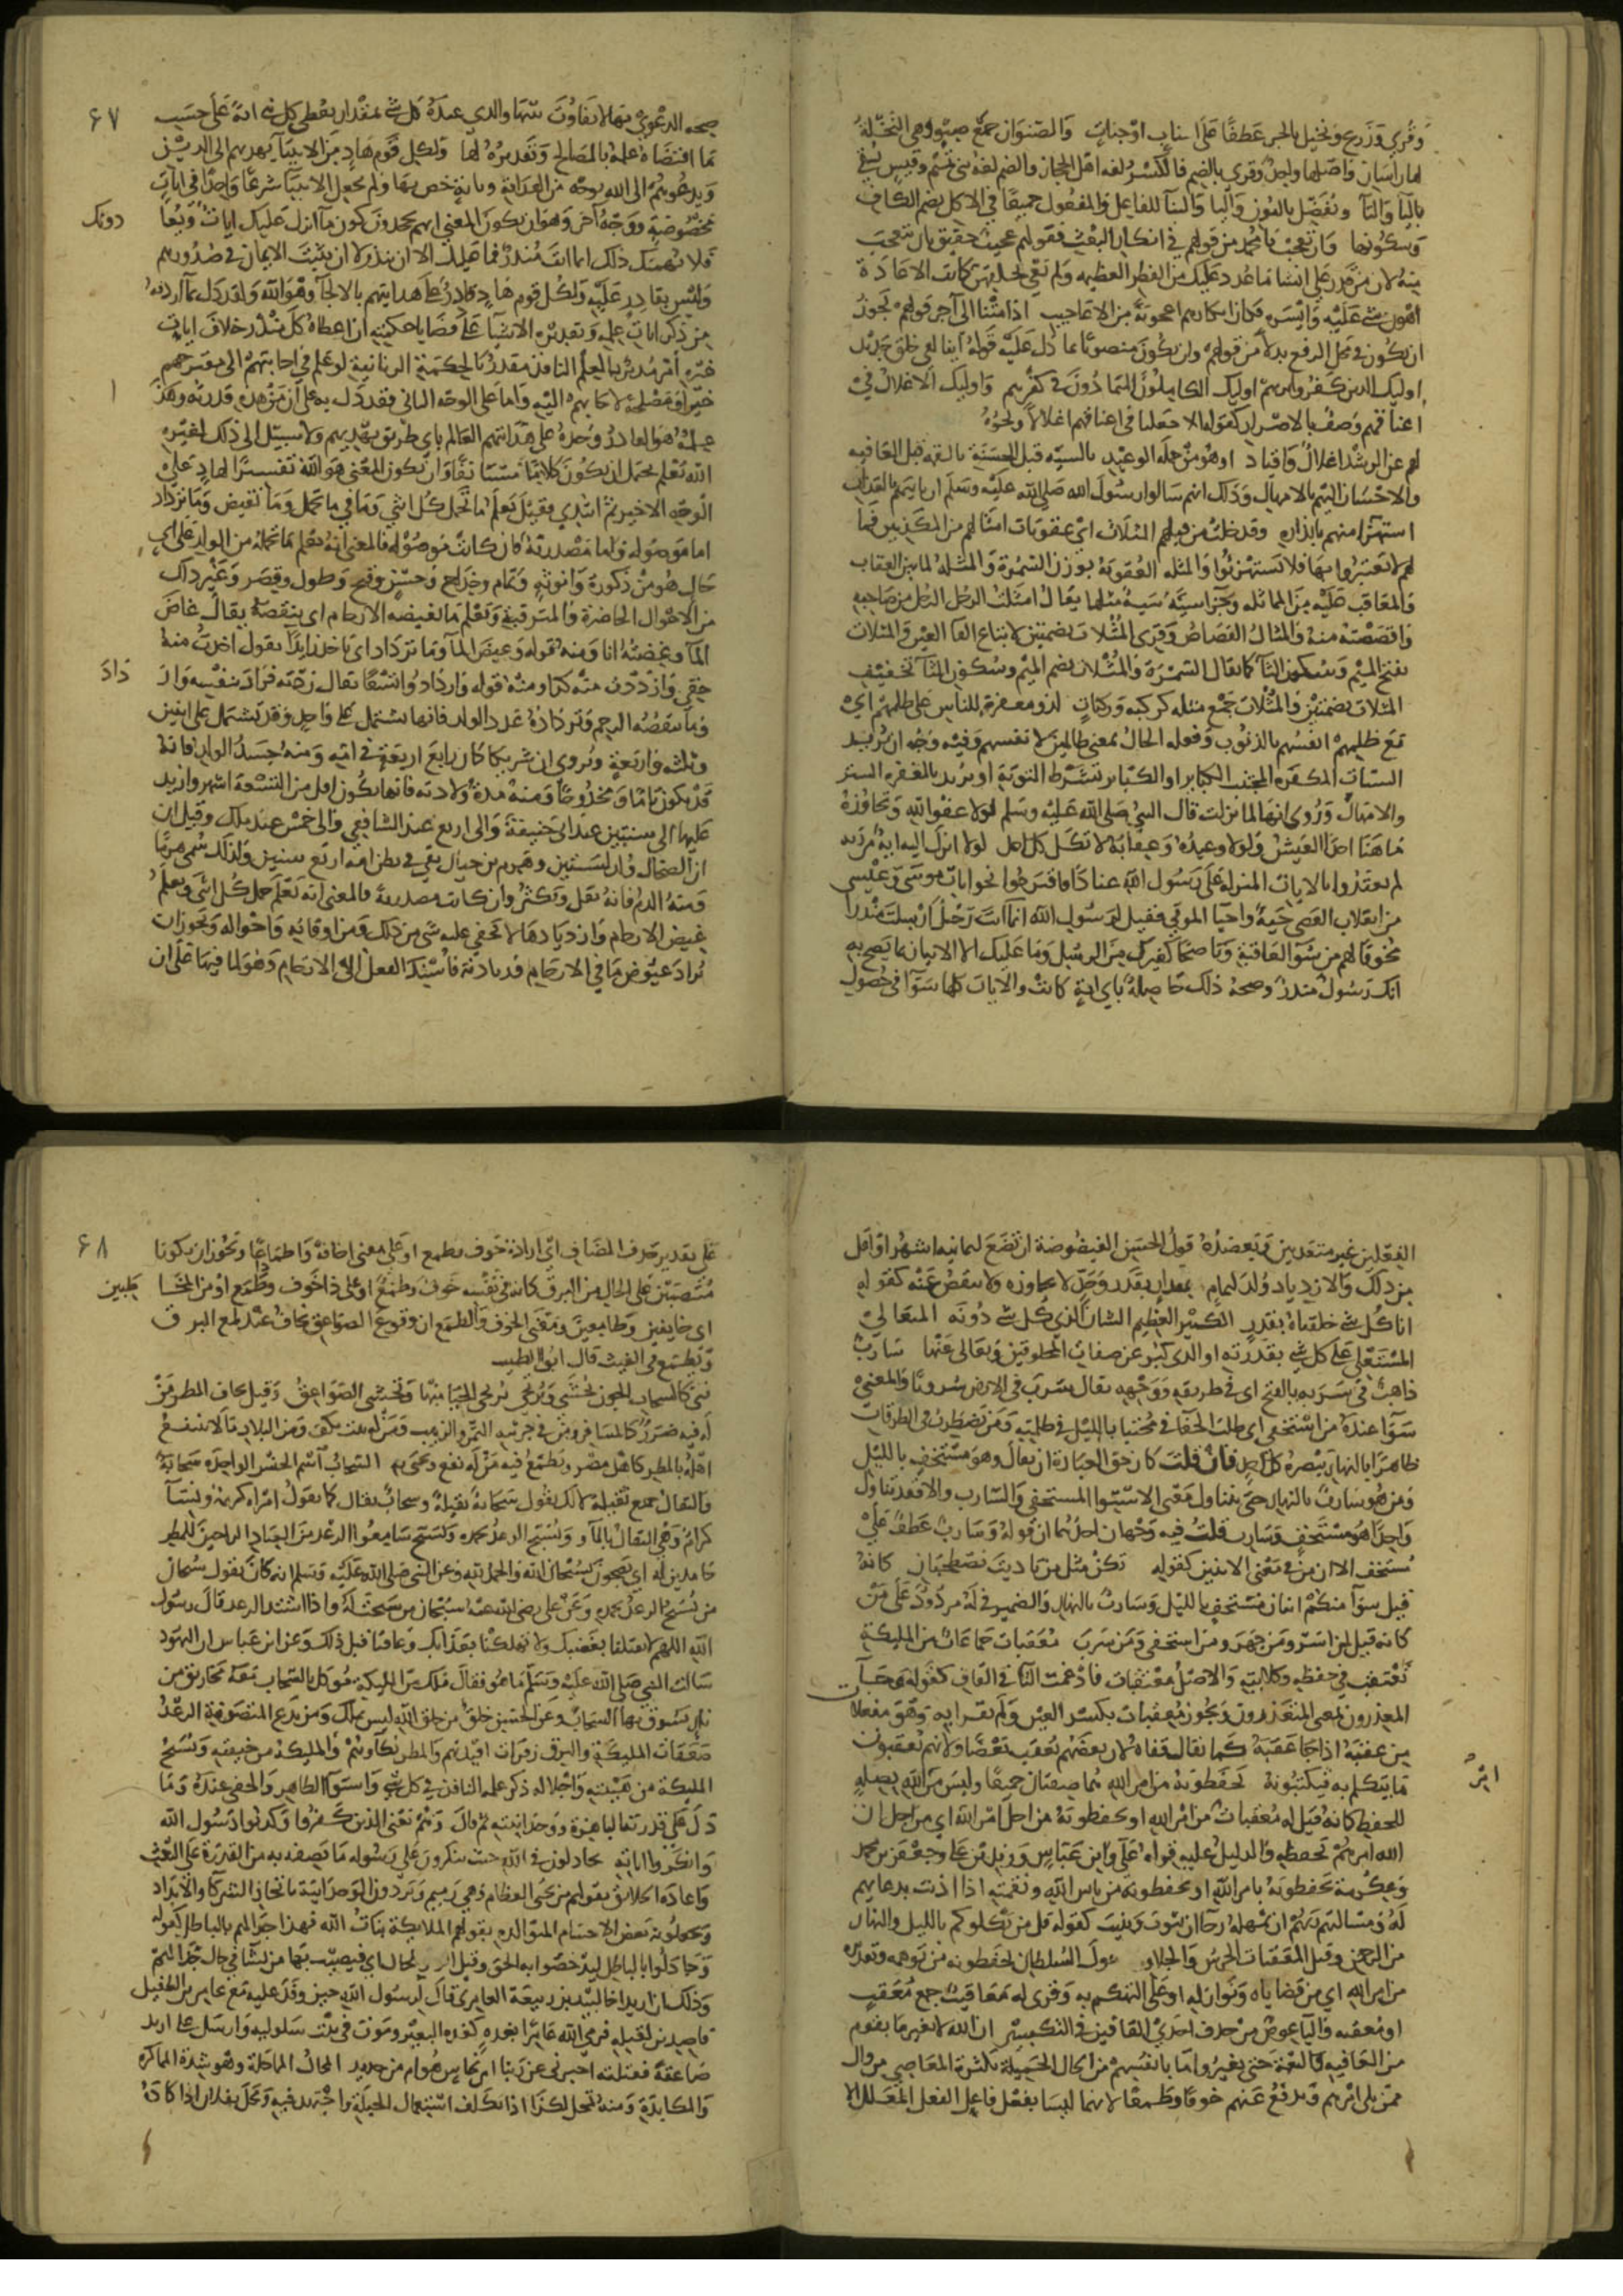 وقرى وزرع ونخيل بالجر عطفا على اعناب او جنات والصنوان جمع صنو وهي النخلة
لها راسان واصلهما واحد وقرى بالضم فالكسر لغة اهل الحجاز والضم لغة بني تميم وقيس تسقى
بالتا واليا ونفضل بالنون واليا والبنا للفاعل والمفعول جميعا في الاكل بضم الكاف
وسكونها وان تعجب يا محمد من قولهم في انكار البعث فقولهم عجيب حقيق بان تتعجب
منه لان من قدر على انشا ما عدد عليك من الفطر العظيمة ولم يعي بخلقهن كانت الاعادة
اهون شي عليه وايسره فكان انكارهم اعجوبة من الاعاجيب اذا متنا الى آخر قولهم يجوز
ان يكون في محل الرفع بدلا من قولهم وان يكون منصوبا بما دل عليه قوله اينا لفي خلق جديد
اوليك الذين كفروا بربهم اوليك الكاملون المتمادون في كفرهم واوليك الاغلال في
اعناقهم وصف بالاصرار كقوله انا جعلنا في اعناقهم اغلالا ونحوه
لهم عن الرشد اغلال واقياد او هو من جملة الوعيد بالسية قبل الحسنة بالنقمة قبل العافية
والاحسان اليهم بالامهال وذلك انهم سالوا رسول الله صلى الله عليه وسلم ان ياتيهم بالعذاب
استهزا منهم بانذاره وقد خلت من قبلهم المثلات اي عقوبات امثالهم من المكذبين فما
لهم لا يعتبروا بها فلا تستهزئوا والمثلة العقوبة بوزن السمرة والمثلة لما بين العقاب
والمعاقب عليه من المماثلة وجزا سية سية مثلها يقال امثلت الرجل من صاحبه
واقصصته منه والمثال القصاص وقرى المثلات بضمتين لاتباع الفا العين والمثلات
بفتح الميم وسكون الثا كما يقال السمرة والمثلات بضم الميم وسكون الثا تخفيف
المثلات بضمتين والمثلات جمع مثلة كركبة وركبات لذو مغفرة للناس على ظلمهم اي
مع ظلمهم انفسهم بالذنوب ومحله الحال بمعنى ظالمين لانفسهم وفيه وجه ان يريد
السيات المكفرة لمجتنب الكباير او الكباير بشرط التوبة او يريد بالمغفرة الستر
والامهال وروي انها لما نزلت قال النبي صلى الله عليه وسلم لولا عفو الله وتجاوزه
ما هنا احدا العيش ولولا وعيده وعقابه لاتكل كل احد لولا انزل اليه اية من ربه
لم يعتدوا بالايات المنزلة على رسول الله عنادا فاقترحوا نحو ايات موسى وعيسى
من انقلاب العصى حية واحيا الموتى فقيل لرسول الله انما انت رجل ارسلت منذرا
مخوفا لهم من سو العاقبة وناصحا كغيرك من الرسل وما عليك الا الاتيان بما يصح به
انك رسول منذر وصحة ذلك حاصلة باي اية كانت والايات كلها سوا في حصول
٦٧
صحة الدعوى بها لا تفاوت بينها والذي عنده كل شي بمقدار يعطي كل نبي اية على حسب
ما اقتضاه علمه بالمصالح وتقديره لها ولكل قوم هاد من الانبيا يهديهم الى الدين
ويدعوهم الى الله بوجه من الهداية وباية خص بها ولم يجعل الانبيا شرعا واحدا في ايات
مخصوصة ووجه آخر وهو ان يكون المعنى انهم يجحدون كون ما انزل عليك ايات ويعا
دونك
فلا يهمنك ذلك انما انت منذر فما عليك الا ان تنذر لا ان تثبت الايمان في صدورهم
وليس بقادر عليه ولكل قوم هاد قادر على هدايتهم بالالجآ وهو الله ولقد دل بما اردفه
من ذكر ايات علمه وتقديره الاشيا على قضايا حكمته ان اعطاه كل منذر خلاف ايات
غيره امر مدبر بالعلم النافذ مقدر بالحكمة الربانية لو علم في اجابتهم الى مقترحهم
خيرا ومصلحة لاجابهم اليه واما على الوجه الثاني فقد دل به على ان من هذه قدرته وهذا
علمه هو القادر وحده على هدايتهم العالم باي طريق يهديهم ولا سبيل الى ذلك لغيره
الله يعلم يحتمل ان يكون كلاما مستانفا وان يكون المعنى هو الله تفسيرا لهاد على
الوجه الاخير ثم ابتدي فقيل يعلم ما تحمل كل انثى وما في ما تحمل وما تغيض وما تزداد
اما موصولة واما مصدرية فان كانت موصولة فالمعنى انه يعلم ما تحمله من الولد على اي
حال هو من ذكورة وانوثة وتمام وخداج وحسن وقبح وطول وقصر وغير ذلك
من الاحوال الحاضرة والمترقبة ويعلم ما تغيضه الارحام اي ينقصه يقال غاض
المآ وغضته انا ومنه قوله وغيض المآ وما تزداد اي تاخذ زايدا يقول اخذت منه
حقي وازددت منه كذا ومنه قوله وازدادوا تسعا يقال زدته فزاد بنفسه واز
داد
وما تنقصه الرحم وتزداده عدد الولد فانها تشتمل على واحد وقد تشتمل على اثنين
وثلثة واربعة ويروى ان شريكا كان رابع اربعة في امه ومنه جسد الولد فانه
قد يكون تاما ومخدوجا ومنه مدة ولادته فانها تكون اقل من التسعة اشهر وازيد
عليها الى سنتين عند ابي حنيفة والى اربع عند الشافعي والى خمس عند ملك وقيل ان
ان الضحاك ولد لسنتين وهرم بن حيان بقي في بطن امه اربع سنين ولذلك سمي هرما
ومنه الدم فانه يقل ويكثر وان كانت مصدرية فالمعنى انه يعلم حمل كل انثى ويعلم
غيض الارحام وازديادها لا تخفى عليه شي من ذلك ومن اوقاته واحواله ويجوز ان
يراد غيوض ما في الارحام وزيادته فاسند الفعل الى الارحام وهو لما فيها على ان
الفعلين غير متعديين ويعضده قول الحسن الغيضوضة ان تضع لثمانية اشهر او اقل
من ذلك والازدياد ولد لتمام بمقدار بقدر وحد لا يجاوزه ولا ينقص عنه كقوله
انا كل شي خلقناه بقدر الكبير العظيم الشان الذي كل شي دونه المتعالي
المستعلي على كل شي بقدرته او الذي كبر عن صفات المخلوقين وتعالى عنها سارب
ذاهب في سربه بالفتح اي في طريقه ووجهه يقال سرب في الارض سروبا والمعنى
سوآ عنده من استخفى اي طلب الخفا في مختبا بالليل في ظلمته ومن يضطرب في الطرقات
ظاهرا بالنهار يبصره كل احد فان قلت كان حق العبارة ان يقال وهو مستخف بالليل
ومن هو سارب بالنهار حتى يتناول معنى الاستوا المستخفي والسارب والا فقد تناول
واحدا هو مستخف وسارب قلت فيه وجهان احدهما ان قوله وسارب عطف على
مستخف الا ان من في معنى الاثنين كقوله نكن مثل من يا ذيب يصطحبان كانه
قيل سوآ منكم اثنان مستخف بالليل وسارب بالنهار والضمير في له مردود على من
كانه قيل لمن اسر ومن جهر ومن استخفى ومن سرب معقبات جماعات من المليكة
تعتقب في حفظه وكلايته والاصل معتقبات فادغمت التا في القاف كقوله وجآ
المعذرون بمعنى المعتذرون ويجوز معقبات بكسر العين ولم يقرا به وهو مفعلات
من عقبه اذا جا عقبه كما يقال قفاه لان بعضهم يعقب بعضا ولانهم يعقبون
ما يتكلم به فيكتبونه يحفظونه من امر الله هما صفتان جميعا وليس من امر الله بصلة
امر
للحفظ كانه قيل له معقبات من امر الله او يحفظونه من اجل امر الله اي من اجل ان
الله امرهم بحفظه والدليل عليه قراة علي وابن عباس وزيد بن علي وجعفر بن محمد
وعكرمة يحفظونه بامر الله او يحفظونه من باس الله ونقمته اذا اذنب بدعايهم
له ومسالتهم ربهم ان يمهله رجآ ان يتوب وينيب كقوله قل من يكلوكم بالليل والنهار
من الرحمن وقيل المعقبات الحرس والجلاو حول السلطان يحفظونه في توهمه وتقديره
من امر الله اي من قضاياه ونوازله او على التهكم به وقرى له معاقيب جمع معقب
او معقبة واليآ عوض من حذف احدى القافين في التكسير ان الله لا يغير ما بقوم
من العافية والنعمة حتى يغيروا ما بانفسهم من الحال الجميلة بكثرة المعاصي من وال
ممن يلي امرهم ويدفع عنهم خوفا وطمعا لانهما ليسا بفعل فاعل الفعل المعلل الا
٦٨
على تقدير حذف المضاف اي ارادة خوف وطمع او على معنى اخافة واطماعا ويجوز ان يكونا
منتصبين على الحال من البرق كانه في نفسه خوف وطمع او على ذا خوف وطمع او من المخا
طبين
اي خايفين وطامعين ومعنى الخوف والطمع ان وقوع الصواعق يخاف عند لمع البرق
ويطمع في الغيث قال ابو الطيب
فتى كالسحاب الجون يخشى ويرتجى يرجى الحيا منها وتخشى الصواعق وقيل يخاف المطر من
له فيه ضرر كالمسافر ومن في جرينه التمر والزبيب ومن له بيت يكف ومن البلاد ما لا ينتفع
اهله بالمطر كاهل مصر ويطمع فيه من له نفع ويحيى به السحاب اسم الجنس الواحدة سحابة
والثقال جمع ثقيلة لانك تقول سحابة ثقيلة وسحاب ثقال كما تقول امراة كريمة ونسآ
كرام وهي الثقال بالمآ ويسبح الرعد بحمده ويسبح سامعوا الرعد من العباد الراجين للمطر
حامدين له اي يضجون بسبحان الله والحمد لله وعن النبي صلى الله عليه وسلم انه كان يقول سبحان
من يسبح الرعد بحمده وعن علي رضي الله عنه سبحان من سبحت له واذا اشتد الرعد قال رسول
الله اللهم لا تقتلنا بغضبك ولا تهلكنا بعذابك وعافنا قبل ذلك وعن ابن عباس ان اليهود
سالت النبي صلى الله عليه وسلم ما هو فقال ملك من المليكة موكل بالسحاب معه مخاريق من
نار يسوق بها السحاب وعن الحسن خلق من خلق الله ليس بملك ومن بدع المتصوفة الرعد
صعقات المليكة والبرق زفرات افيدتهم والمطر بكآوهم والمليكة من خيفته ويسبح
المليكة من هيبته واجلاله ذكر علمه النافذ في كل شي واستوآ الظاهر والخفي عنده وما
دل على قدرته الباهرة ووحدانيته ثم قال وهم يعني الذين كفروا وكذبوا رسول الله
وانكروا اياته يجادلون في الله حيث ينكرون على رسوله ما يصفه به من القدرة على البعث
واعادة الخلايق بقولهم من يحيى العظام وهي رميم ويردون الوحدانية باتخاذ الشركآ والانداد
ويجعلونه بعض الاجسام المتوالدة بقولهم الملايكة بنات الله فهذا جدالهم بالباطل كقوله
وجادلوا بالباطل ليدحضوا به الحق وقيل الواو للحال اي فيصيب بها من يشآ في حال جدالهم
وذلك ان اربد اخا لبيد بن ربيعة العامري قال لرسول الله حين وفد عليه مع عامر بن الطفيل
قاصدين لقتله فرمى الله عامرا بغدة كغدة البعير وموت في بيت سلولية وارسل على اربد
صاعقة فقتلته اخبرني عن ربنا امن نحاس هو ام من حديد المحال المماحلة وهو شدة المماكرة
والمكايدة ومنه تمحل لكذا اذا تكلف استعمال الحيلة واجتهد فيه ومحل بفلان اذا كاده